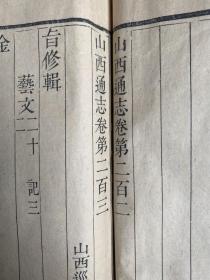 山西通志卷第二百二
山西通志卷第二百三
山西巡
旨修輯
藝文二十二 記三
金